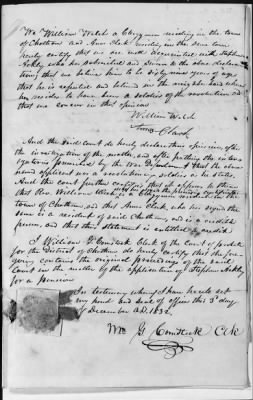 We William Welch a Clergyman residing in the town
of Chatham and Amos Clark residing in the same town
hereby certify that we are well acquainted with Stephen
Ashby who has subscribed and sworn to the above declara-
tion; that we believe him to be eighty nine years of age
that he is reputed and believed in the neighborhood where
he resides to have been a soldier of the revolution and
that we concur in that opinion
William Welch
Amos Clark
And the said Court do hereby declare their opinion, after
the investigation of the matter, and after putting the inter-
rogatories prescribed by the War Department that the above
named applicant was a revolutionary soldier as he states.
And the Court further certifies that it appears to them
that Rev. William Welch who has signed the preceding certificate
is a Clergyman resident in the
town of Chatham, and that Amos Clark, who has signed the
same is a resident of said Chatham, and is a credible
person, and that their statement is entitled to credit
I William G. Comstock Clerk of the Court of probate
for the District of Chatham do hereby certify that the fore-
going contains the original proceedings of the said
Court in the matter of the application of Stephen Ashby
for a pension
In testimony whereof I have hereunto set
my hand and seal of office this 3d day
of December A.D. 1832.
Wm G. Comstock Clk